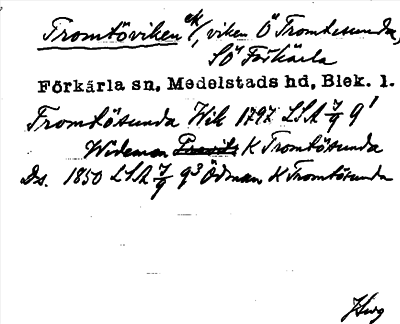 Tromtöviken ek/, viken Ö Tromtesunda,
SÖ Förkärla
Förkärla sn, Medelstads hd, Blek. l.
Tromtösunda Wik 1797 LSA J/9 9¹
Wideman K Tromtösunda
Ds. 1850 LSA J/9 9³ Ödman K Tromtösunda